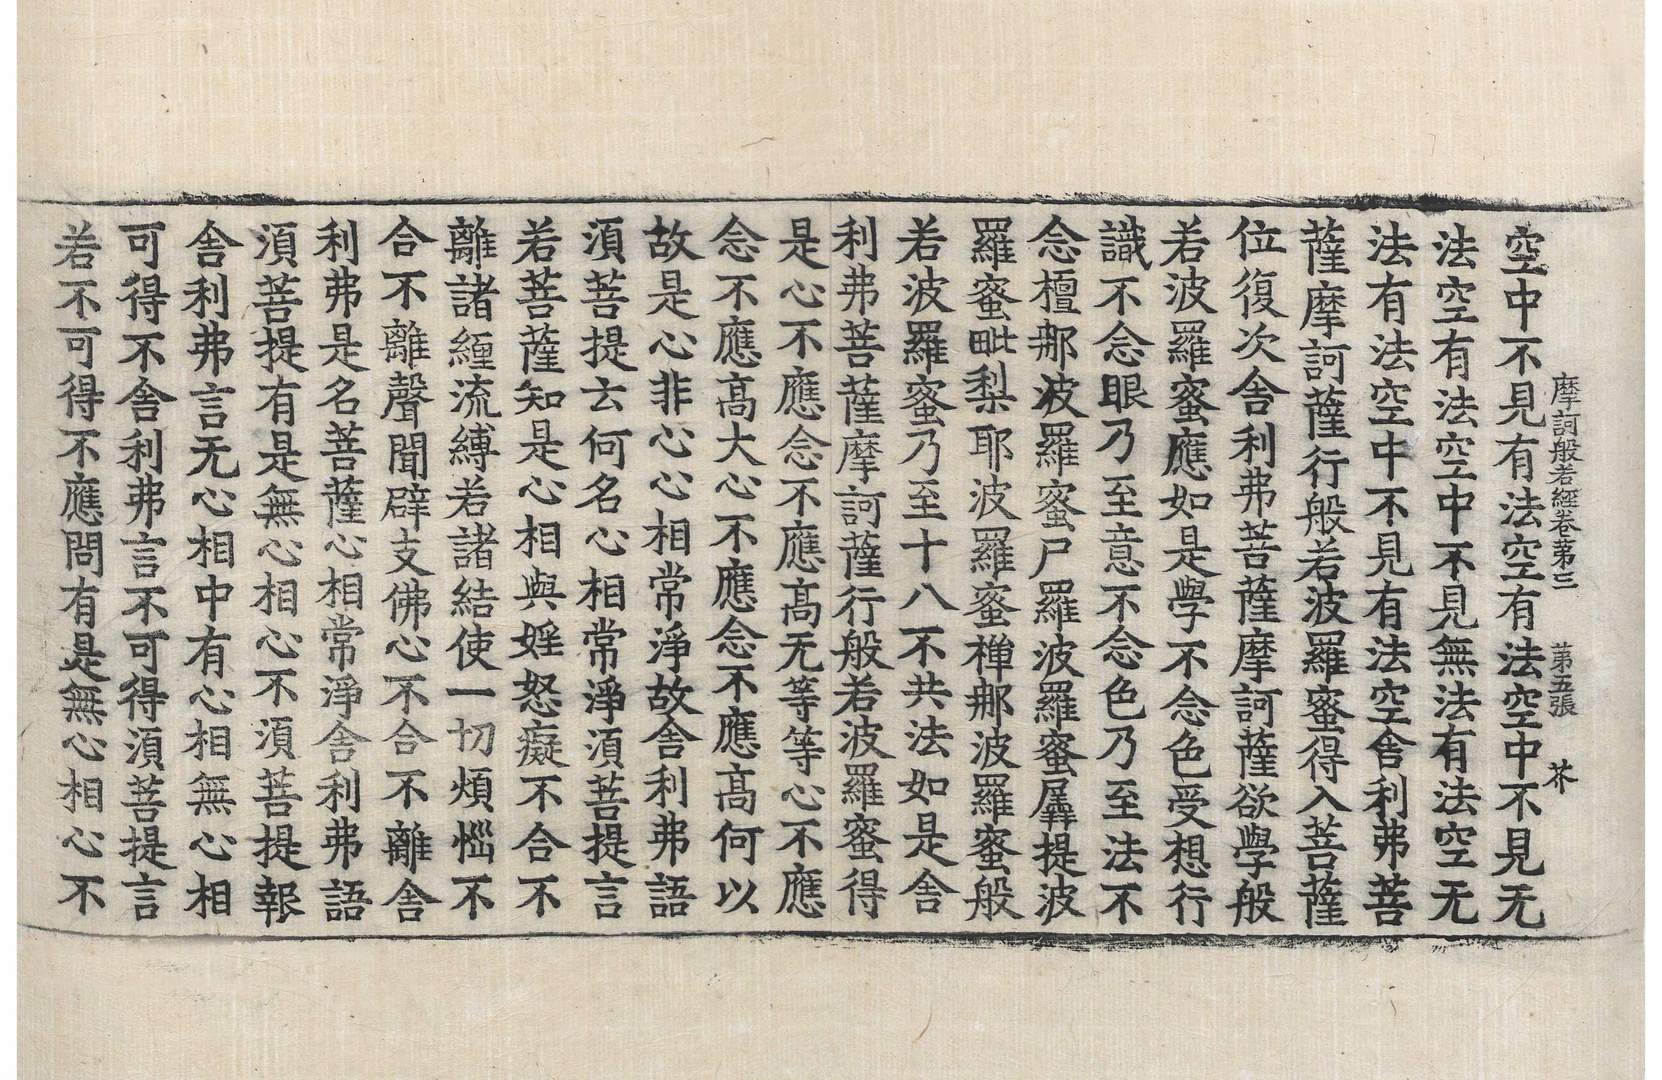 摩訶般若經卷第三 第五張 芥
空中不見有法空有法空中不見无
法空有法空中不見無法有法空无
法有法空中不見有法空舍利弗菩
薩摩訶薩行般若波羅蜜得入菩薩
位復次舍利弗菩薩摩訶薩欲學般
若波羅蜜應如是學不念色受想行
識不念眼乃至意不念色乃至法不
念檀那波羅蜜尸羅波羅蜜羼提波
羅蜜毗梨耶波羅蜜禅那波羅蜜般
若波羅蜜乃至十八不共法如是舍
利弗菩薩摩訶薩行般若波羅蜜得
是心不應念不應髙无等等心不應
念不應髙大心不應念不應髙何以
故是心非心心相常淨故舍利弗語
須菩提云何名心相常淨須菩提言
若菩薩知是心相與婬怒癡不合不
離諸纏流縛若諸結使一切煩惱不
合不離聲聞辟支佛心不合不離舍
利弗是名菩薩心相常淨舍利弗語
須菩提有是無心相心不須菩提報
舍利弗言无心相中有心相無心相
可得不舍利弗言不可得須菩提言
若不可得不應問有是無心相心不